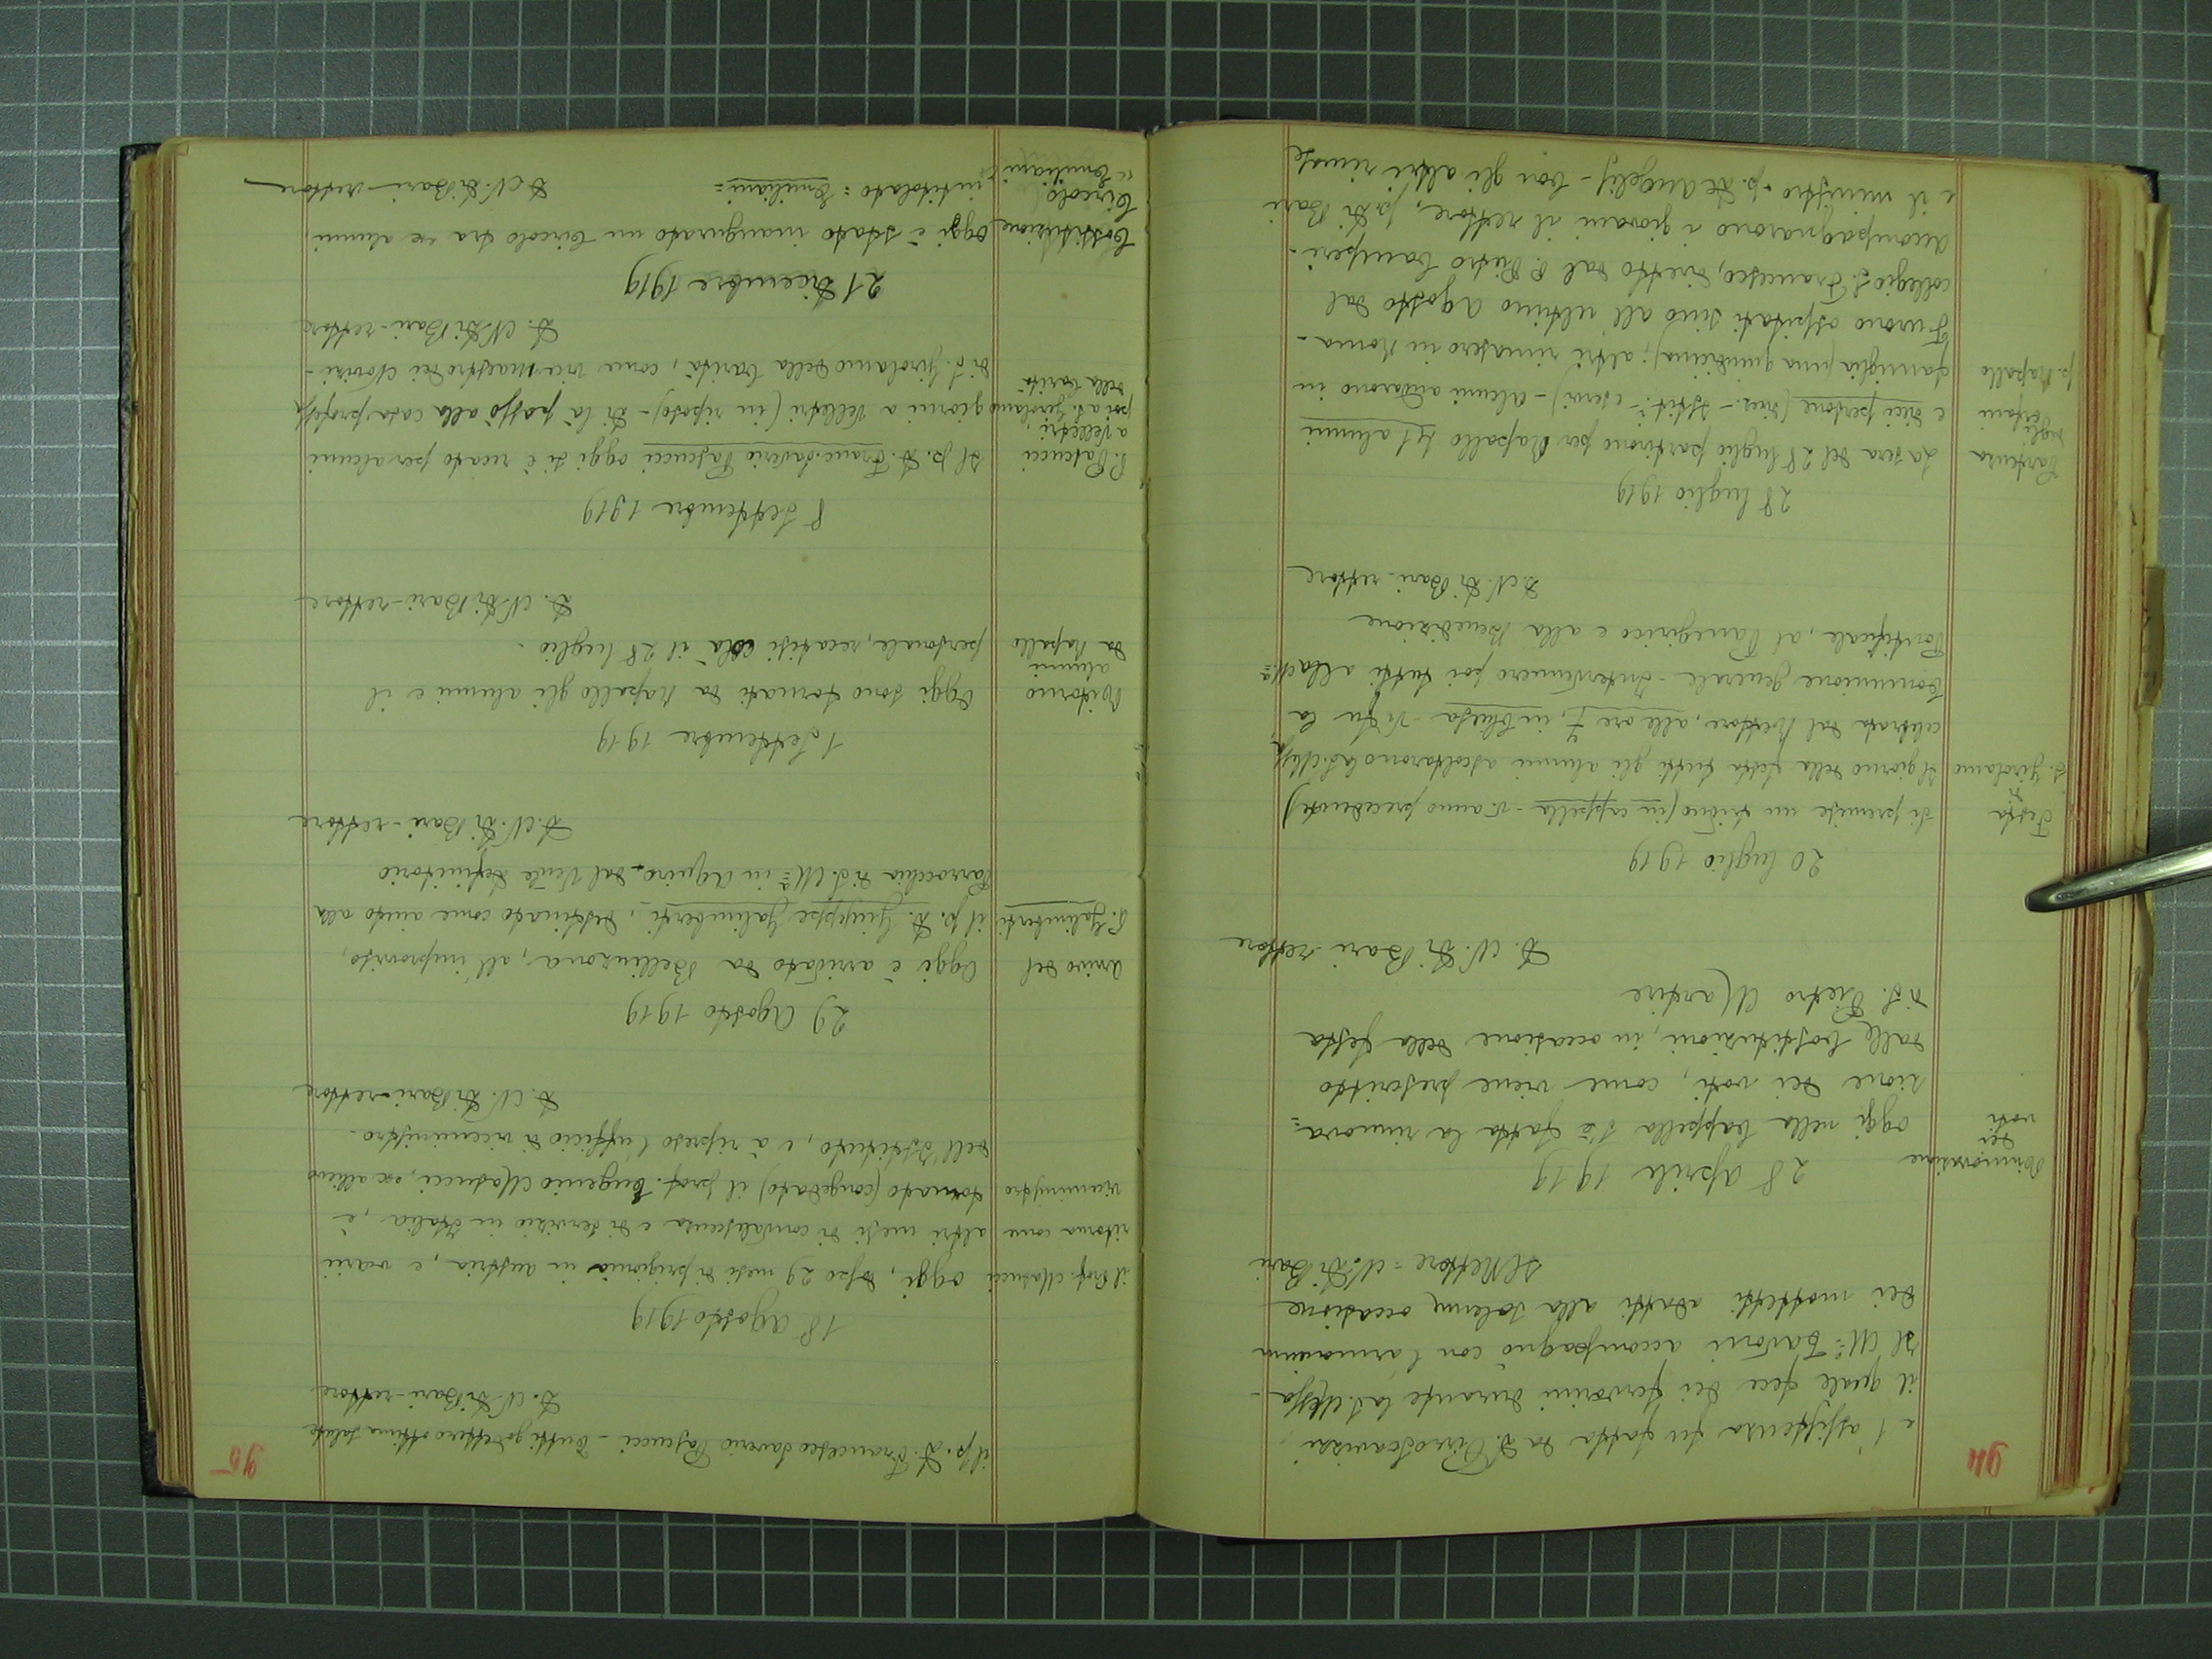 94
e l'assistenza fu fatta da D.
il quale fece dei fervorini durante la S. Messa -
Il M.° Tavoni accompagnò con l'armonium
dei mottetti adatti alla solenne occasione
Il Rettore = N. Di Bari
28 aprile 1919
Rinnovazione
dei
voti
oggi nella Cappella s'è fatta la rinnova=
zione dei voti, come viene prescritto
dalle Costituzioni, in occasione della festa
di S. Pietro Martire
D. N. Di Bari rettore
20 luglio 1919
Festa
di
S. Girolamo
Si premise un triduo (in cappella - v. anno precedente)
Il giorno della festa tutti gli alunni ascoltarono la S. Messa
celebrata dal Rettore, alle ore 7, in Chiesa - Vi fu la
Comunione generale - Intervennero poi tutti alla M.a
Pontificale, al Panegirico e alla Benedizione
D. N. Di Bari - rettore
28 luglio 1919
Partenza
degli
orfani
p. Rapallo
La sera del 28 luglio partirono per Rapallo 41 alunni
e dieci persone (Live. - Istit. - e servi) - Alcuni andarono in
famiglia (una quindicina); altri rimasero in Roma -
Furono ospitati sino all'ultimo Agosto dal
collegio S. Francesco, diretto dal P. Pietro Camperi -
Accompagnarono i giovani il rettore, p. Di Bari
e il ministro - p. De Angelis - Con gli altri rimase
95
il p. D. Francesco Saverio Pascucci - Tutti godettero ottima salute
D. N. Di Bari - rettore
18 Agosto 1919
il Prof. Masucci
ritorna come
viceministro
oggi, dopo 29 mesi di prigionia in Austria, e varii
altri mesi di convalescenza e di servizio in Italia, è
tornato (congedato) il prof. Eugenio Masucci, ex allievo
dell'Istituto, e à ripreso l'ufficio di viceministro -
D. N. Di Bari - rettore
29 Agosto 1919
arrivo del
P. Galimberti
Oggi è arrivato da Bellinzona, all'improvviso,
il p. D. Giuseppe Galimberti, destinato come aiuto alla
Parrocchia di S. M.a in Aquiro - dal Ven.le Definitorio
D. N. Di Bari - rettore
1 Settembre 1919
Ritorno
alunni
da Rapallo
Oggi sono tornati da Rapallo gli alunni e il
personale, recatisi colà il 28 luglio -
D. N. Di Bari - rettore
8 Settembre 1919
P. Pascucci
a Velletri
poi a S. Girolamo
della Carità
Il p. D. Franc. Saverio Pascucci oggi si è recato per alcuni
giorni a Velletri (in riposo) - Di là passò alla casa professa
di S. Girolamo della Carità, come vice-maestro dei Novizi -
D. N. Di Bari - rettore
21 Dicembre 1919
Costituzione
Circolo
"Emiliani"
Oggi è stato inaugurato un Circolo tra ex alunni,
intitolato = Emiliani =
D. N. Di Bari - rettore